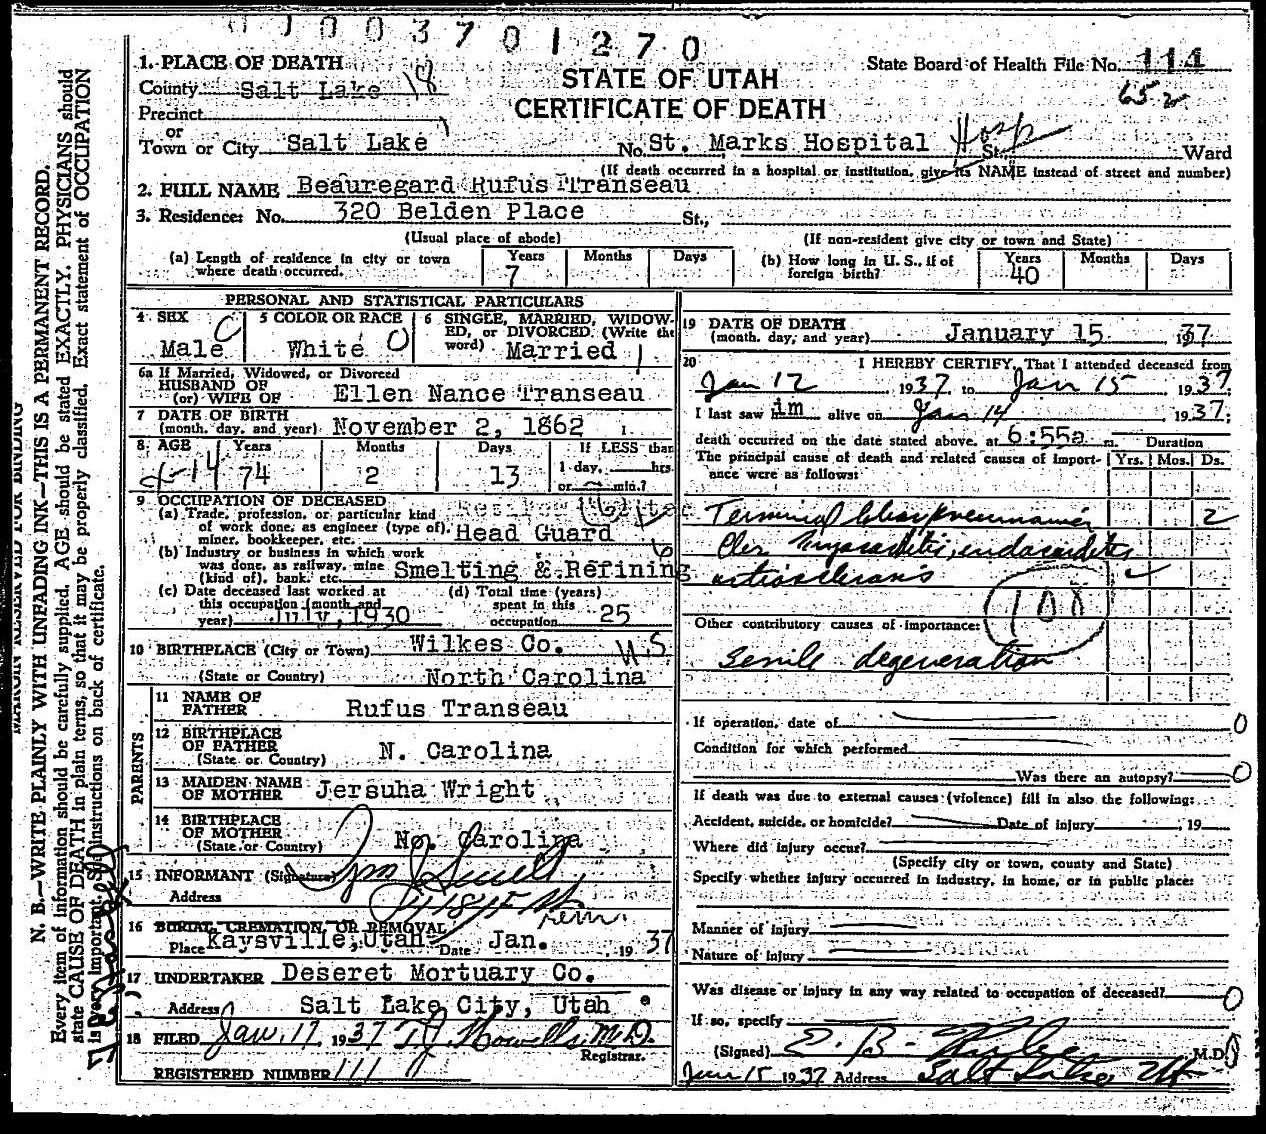 0100370 1270
1. PLACE OF DEATH
County Salt Lake 18
STATE OF UTAH
CERTIFICATE OF DEATH
State Board of Health File No. 114
65
Precinct
or
Town or City Salt Lake No. St. Marks Hospital Hosp St. Ward
(If death occurred in a hospital or institution, give its NAME instead of street and number)
2. FULL NAME Beauregard Rufus Transeau
3. Residence: No. 320 Belden Place St.,
(Usual place of abode) (If non-resident give city or town and State)
(a) Length of residence in city or town where death occurred. Years 7 Months Days
(b) How long in U. S., if of foreign birth? Years 40 Months Days
PERSONAL AND STATISTICAL PARTICULARS
4 SEX Male
5 COLOR OR RACE White
6 SINGLE, MARRIED, WIDOWED, or DIVORCED (Write the word) Married
6a If Married, Widowed, or Divorced
HUSBAND OF
(or) WIFE OF Ellen Nance Transeau
7 DATE OF BIRTH
(month, day, and year) November 2, 1862
8 AGE Years 74 Months 2 Days 13
If LESS than
1 day, hrs.
or min.?
9 OCCUPATION OF DECEASED
(a) Trade, profession, or particular kind
of work done, as engineer (type of),
miner, bookkeeper, etc. Head Guard
(b) Industry or business in which work
was done, as railway, mine
(kind of), bank, etc. Smelting & Refining
(c) Date deceased last worked at
this occupation (month and
year) July, 1930
(d) Total time (years)
spent in this
occupation 25
10 BIRTHPLACE (City or Town) Wilkes Co. U.S
(State or Country) North Carolina
PARENTS
11 NAME OF
FATHER Rufus Transeau
12 BIRTHPLACE
OF FATHER
(State or Country) N. Carolina
13 MAIDEN NAME
OF MOTHER Jersuha Wright
14 BIRTHPLACE
OF MOTHER
(State or Country) No. Carolina
15 INFORMANT (Signature)
Address
16 BURIAL, CREMATION, OR REMOVAL rem.
Place Kaysville, Utah Date Jan. 1937
17 UNDERTAKER Deseret Mortuary Co.
Address Salt Lake City, Utah
18 FILED Jan. 17 1937 T. J. Howells, M.D.
Registrar.
REGISTERED NUMBER 111
19 DATE OF DEATH
(month, day, and year) January 15 1937
20 I HEREBY CERTIFY, That I attended deceased from
Jan 12 1937 to Jan 15, 1937
I last saw him alive on Jan 14 1937;
death occurred on the date stated above, at 6:55a m. Duration
The principal cause of death and related causes of importance were as follows: Yrs. Mos. Ds.
Terminal lobar pneumonia 2
Chr myocarditis, endocarditis
arteriosclerosis
108
Other contributory causes of importance:
Senile degeneration
If operation, date of 0
Condition for which performed
Was there an autopsy? 0
If death was due to external causes (violence) fill in also the following:
Accident, suicide, or homicide? Date of injury , 19
Where did injury occur?
(Specify city or town, county and State)
Specify whether injury occurred in industry, in home, or in public place:
Manner of injury
Nature of injury
Was disease or injury in any way related to occupation of deceased? 0
If so, specify
(Signed) E. B. M.D.
Jan 15 1937 Address Salt Lake Ut
MARGIN RESERVED FOR BINDING
N. B.—WRITE PLAINLY WITH UNFADING INK—THIS IS A PERMANENT RECORD.
Every item of information should be carefully supplied. AGE should be stated EXACTLY. PHYSICIANS should
state CAUSE OF DEATH in plain terms, so that it may be properly classified. Exact statement of OCCUPATION
is very important. See instructions on back of certificate.